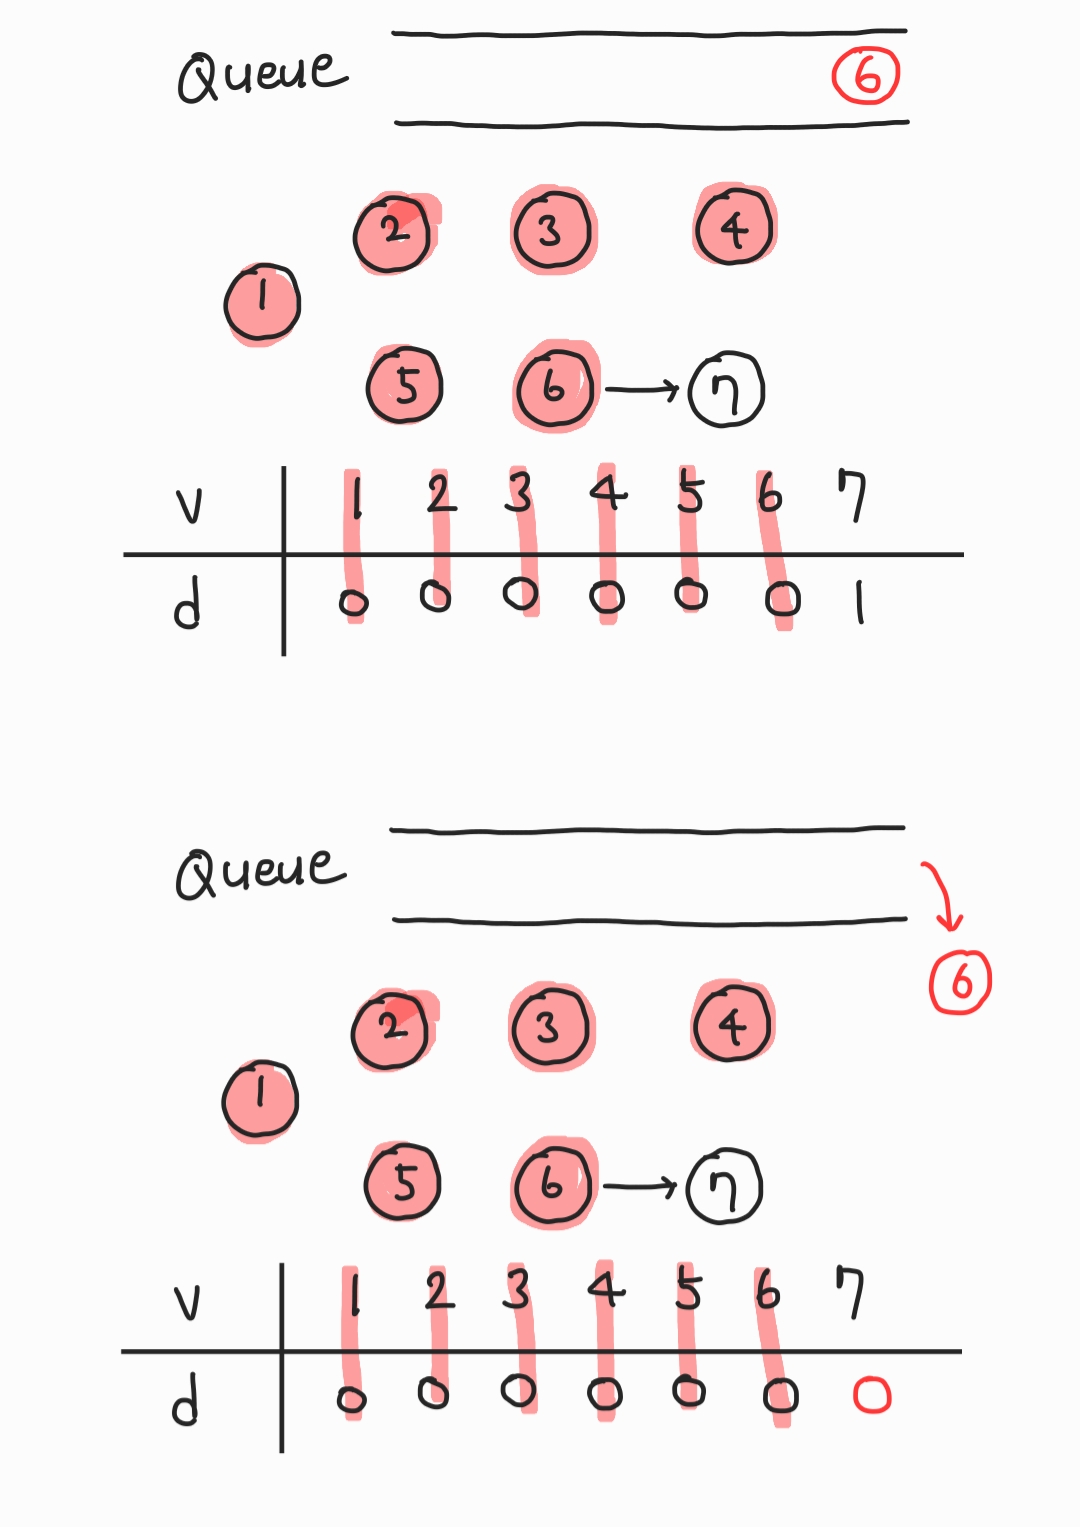 Queue 6
2 3 4
1
5 6 → 7
v 1 2 3 4 5 6 7
d 0 0 0 0 0 0 1
Queue
6
2 3 4
1
5 6 → 7
v 1 2 3 4 5 6 7
d 0 0 0 0 0 0 0